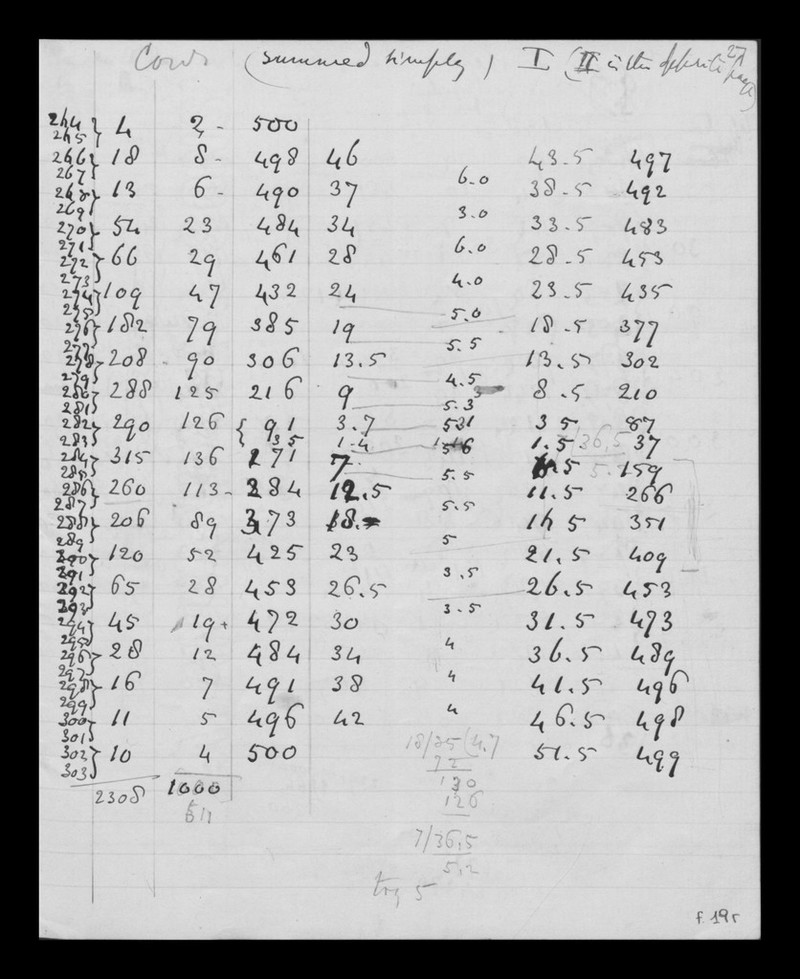 Cows (summed simply) I (II is the opposite page) 27
264 265 } 4 2 - 500
266 267 } 18 8 - 498 46 43.5 497
6.0
268 269 } 13 6 - 490 37 38.5 492
3.0
270 271 } 54 23 484 34 33.5 483
6.0
272 273 } 66 29 461 28 28.5 453
4.0
274 275 } 109 47 432 24 23.5 435
5.0
276 277 } 182 79 385 19 18.5 377
5.5
278 279 } 208 90 306 13.5 13.5 302
4.5
280 281 } 288 125 216 9 8.5 210
5.3
282 283 } 290 126 { 91 3.7 3 5 87
35 1.4 1.5 36.5 37
284 285 } 315 136 171 7 6.5 5. 159
5.5
286 287 } 260 113 - 284 12.5 11.5 266
5.5
288 289 } 206 89 373 18. 16 5 351
5
290 291 } 120 52 425 23 21.5 409
3.5
292 293 } 65 28 453 26.5 26.5 453
3.5
294 295 } 45 19+ 472 30 31.5 473
4
296 297 } 28 12 484 34 36.5 489
4
298 299 } 16 7 491 38 41.5 496
4
300 301 } 11 5 496 42 46.5 498
18/85(4.7
302 303 } 10 4 500 51.5 499
72
130
2308 1000
126
7/36.5
5.2
try 5
f. 19r